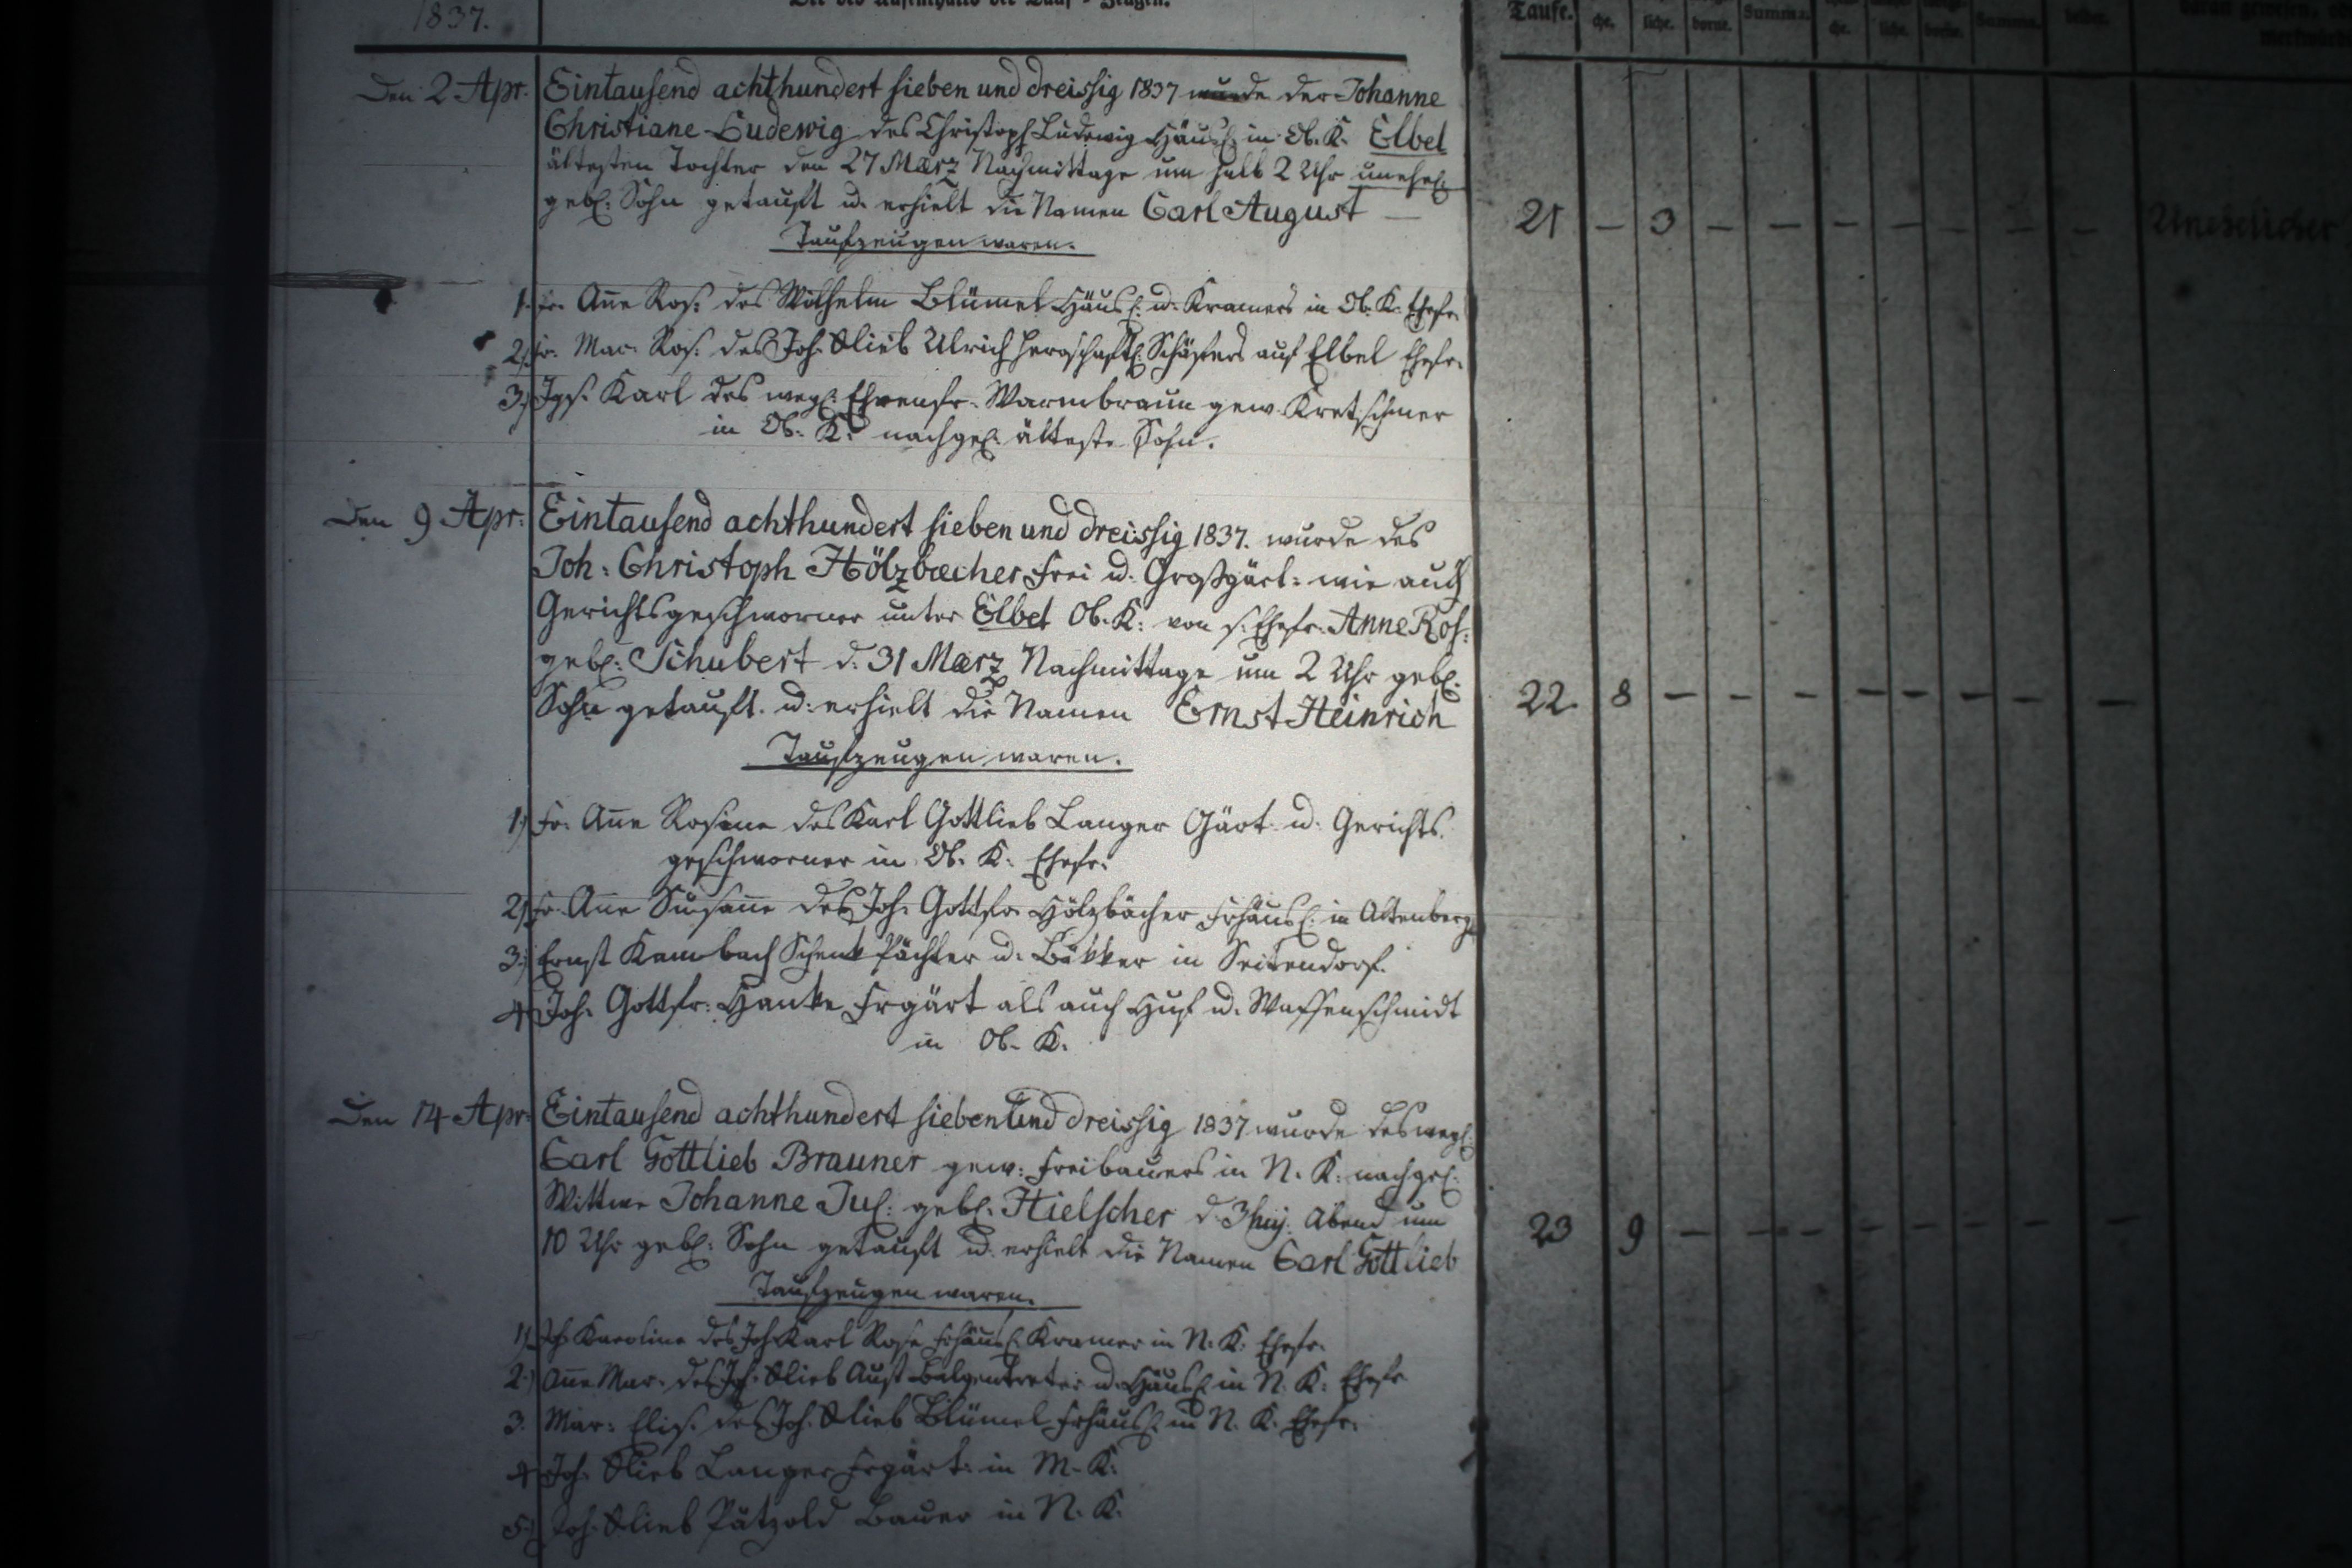 1837.
Den 2 Apr. Eintausend achthundert sieben und dreissig 1837 wurde der Johanne
Christiane Ludewig des Christoph Ludewig Häusl. in Ob. K. Elbel
ältesten Tochter den 27 März Nachmittage um halb 2 Uhr unehel.
gebl. Sohn getauft u. erhielt die Namen Carl August —
Taufzeugen waren.
1. Fr. Anne Ros: des Wilhelm Blümel Häusl. u. Kramers in Ob. K. Ehefr.
2.) Fr. Mar. Ros: des Joh. Glieb Ulrich herrschaftl. Schäfers auf Elbel Ehefr.
3.) Igs. Karl des wegl. Ehrenfr. Warmbraun gew. Kretschmer
in Ob. K. nachgel. älteste Sohn.
21 — 3 — — — — — — —
Unehelicher
Den 9 Apr: Eintausend achthundert sieben und dreissig 1837. wurde des
Joh: Christoph Hölzbæcher Frei u. Großgärt: wie auch
Gerichtsgeschworner unter Elbel Ob. K: von s. Ehefr. Anne Ros:
gebl: Schubert d. 31 März Nachmittage um 2 Uhr gebl.
Sohn getauft. u. erhielt die Namen Ernst Heinrich
Taufzeugen waren.
1.) Fr. Anne Rosine des Karl Gottlieb Langer Gärt. u. Gerichts
geschworner in Ob. K: Ehefr.
2.) Fr. Anne Susanne des Joh. Gottfr. Hölzbächer Frhäusl. in Altenberg
3.) Ernst Kambach Schenk Pächter u. Bäkker in Seitendorf.
4.) Joh. Gottfr: Hanke Frgärt als auch Huf u. Waffenschmidt
in Ob. K.
22. 8 — — — — — — — —
Den 14 Apr. Eintausend achthundert sieben und dreissig 1837 wurde des wegl.
Carl Gottlieb Brauner gew: Freibauers in N. K: nachgel.
Wittwe Johanne Jul: gebl. Hielscher d. 3 huj: Abend um
10 Uhr gebl: Sohn getauft u. erhielt die Namen Carl Gottlieb
Taufzeugen waren.
1.) Karoline des Joh. Karl Rose Frhäusl. Kramer in N. K: Ehefr.
2.) Anne Mar. des Joh. Glieb Aust Balgentreter u. Häusl. in N. K: Ehefr
3. Mar: Elis. des Joh. Glieb Blümel Frhäusl. in N. K. Ehefr.
4 Joh. Glieb Langer Frgärt. in M. K:
5.) Joh. Glieb Pätzold Bauer in N. K.
23 9 — — — — — — —
Taufe.